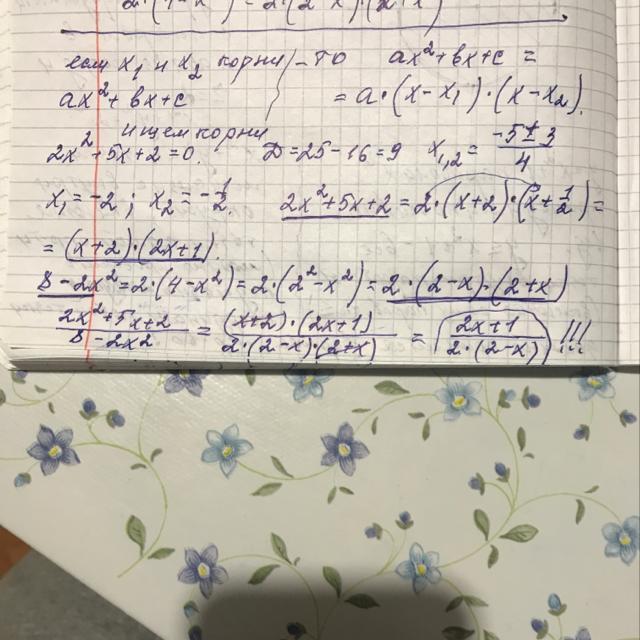 если x₁ и x₂ корни – то ax²+bx+c =
ax²+bx+c = a·(x–x₁)·(x–x₂).
ищем корни
2x²+5x+2=0. D=25–16=9 x₁,₂= (–5±3)/4
x₁=–2; x₂=–1/2. 2x²+5x+2=2·(x+2)·(x+1/2)=
=(x+2)·(2x+1).
8–2x²=2·(4–x²)=2·(2²–x²)=2·(2–x)·(2+x)
(2x²+5x+2)/(8–2x2) = ((x+2)·(2x+1))/(2·(2–x)·(2+x)) = (2x+1)/(2·(2–x)) !!!